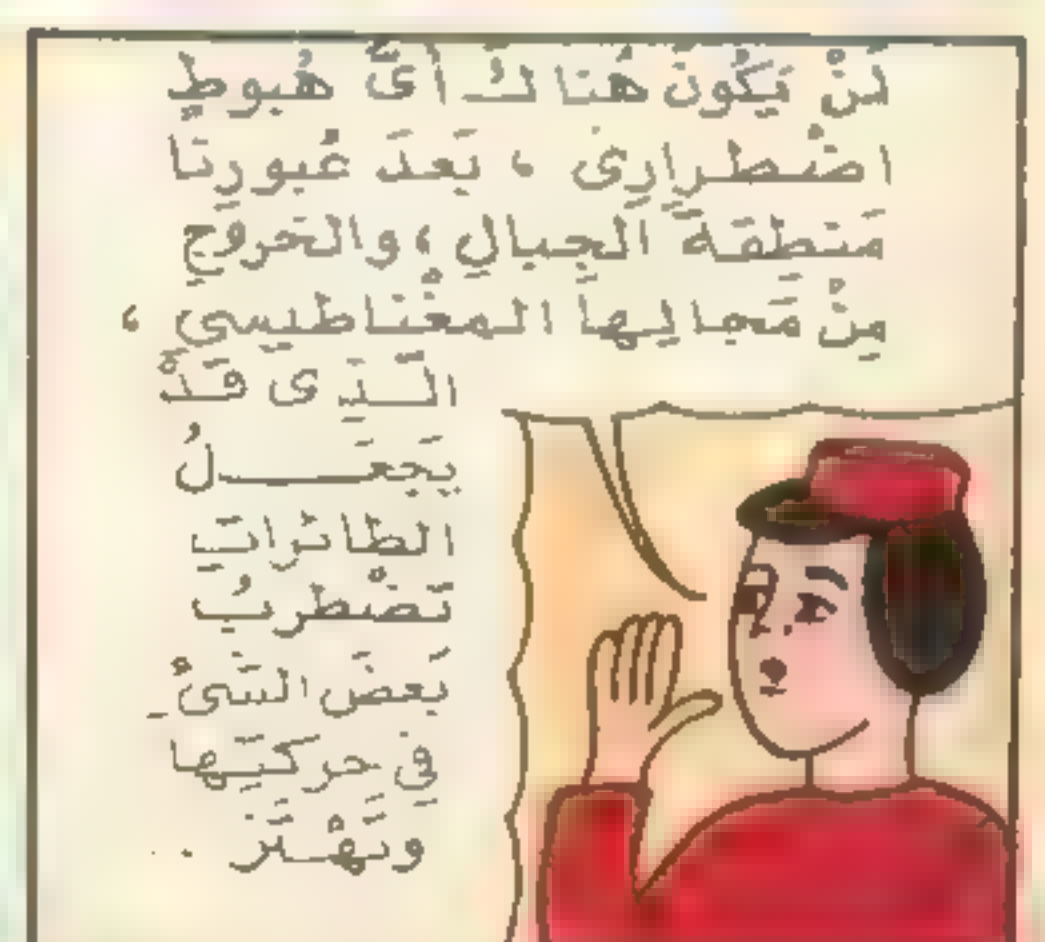 لَنْ يَكُونَ هُنَاكَ أَىُّ هُبوطٍ
اضْطِرارِىٍّ ، بَعدَ عُبورِنَا
مَنطِقةَ الجِبالِ ، والخروجِ
مِنْ مَجالِها المغْناطيسِي ،
الَّذِى قَدْ
يَجعَلُ
الطَّائراتِ
تَضْطربُ
بَعضَ الشَّىْءِ
فِى حركتِها
وتَهْتَزّ .